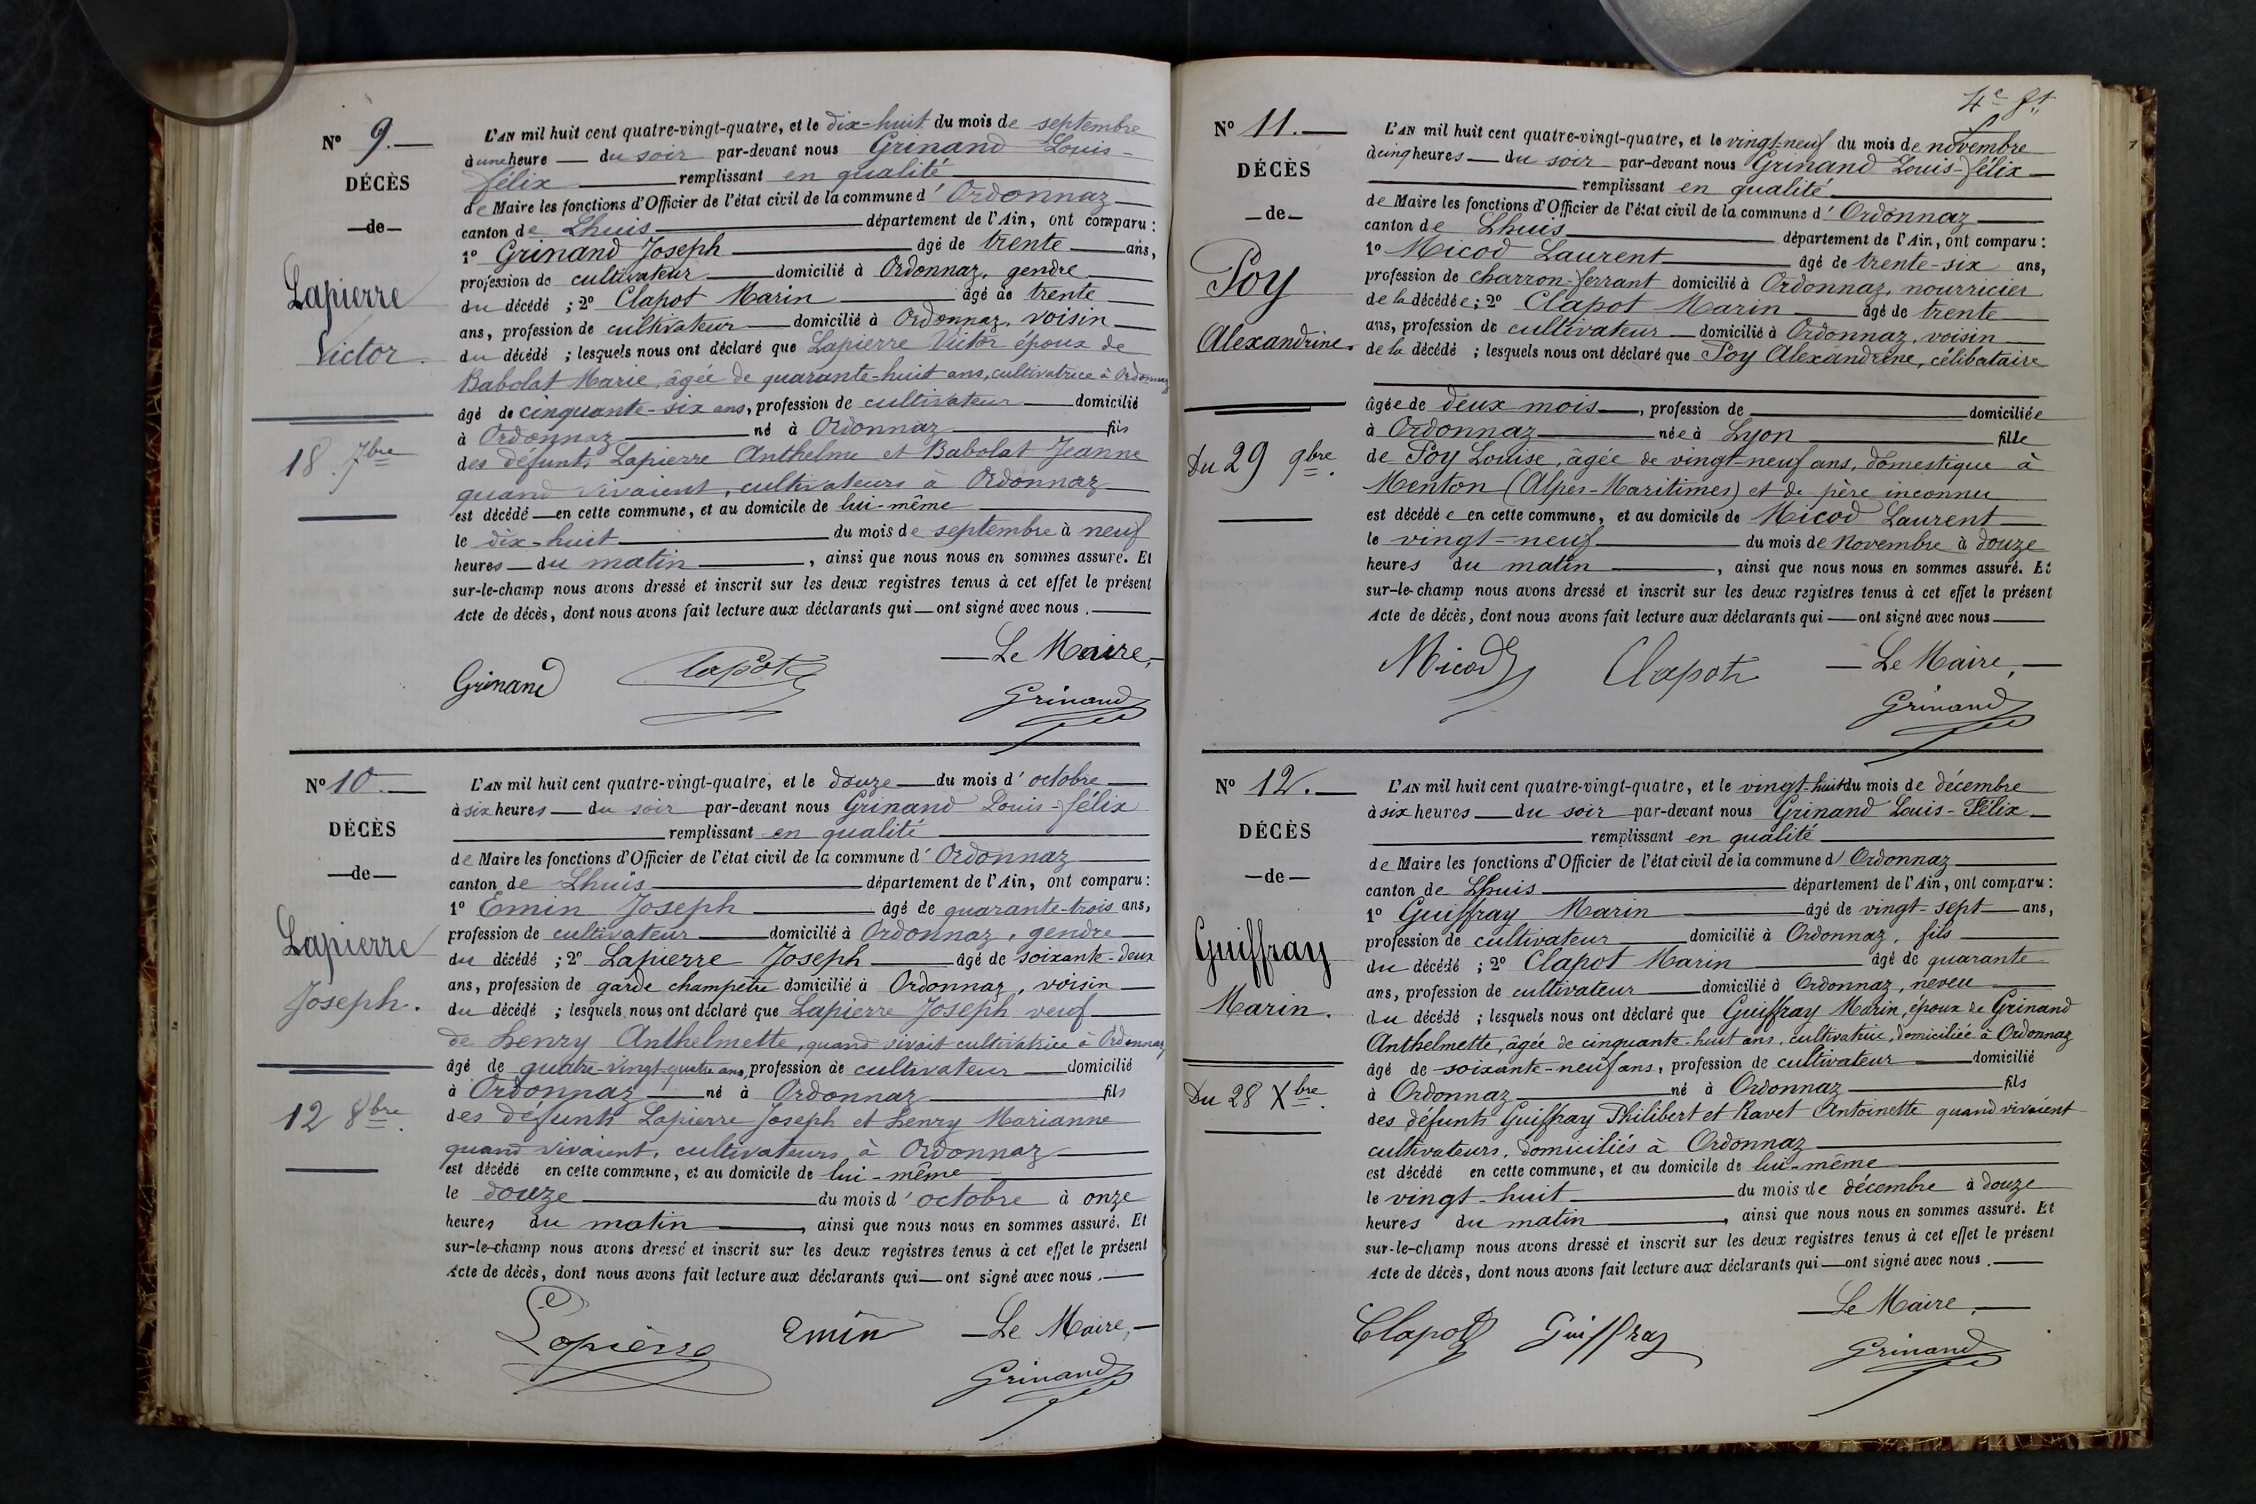 N° 9.
DÉCÈS
—de—
Lapierre
Victor.
18 7bre
L'AN mil huit cent quatre-vingt-quatre, et le dix-huit du mois de septembre
à une heure — du soir par-devant nous Grinand Louis-
félix remplissant en qualité
de Maire les fonctions d'Officier de l'état civil de la commune d'Ordonnaz
canton de Lhuis département de l'Ain, ont comparu :
1° Grinand Joseph âgé de trente ans,
profession de cultivateur domicilié à Ordonnaz, gendre
du décédé ; 2° Clapot Marin âgé de trente
ans, profession de cultivateur domicilié à Ordonnaz, voisin
du décédé ; lesquels nous ont déclaré que Lapierre Victor époux de
Babolat Marie, âgée de quarante-huit ans, cultivatrice à Ordonnaz
âgé de cinquante-six ans, profession de cultivateur domicilié
à Ordonnaz né à Ordonnaz fils
des défunts Lapierre Anthelme et Babolat Jeanne
quand vivaient, cultivateurs à Ordonnaz
est décédé — en cette commune, et au domicile de lui-même
le dix-huit du mois de septembre à neuf
heures — du matin, ainsi que nous nous en sommes assuré. Et
sur-le-champ nous avons dressé et inscrit sur les deux registres tenus à cet effet le présent
Acte de décès, dont nous avons fait lecture aux déclarants qui — ont signé avec nous.
— Le Maire, —
Grinand Clapot Grinand
N° 10
DÉCÈS
—de—
Lapierre
Joseph.
12 8bre.
L'AN mil huit cent quatre-vingt-quatre, et le douze du mois d'octobre
à six heures — du soir par-devant nous Grinand Louis-félix
remplissant en qualité
de Maire les fonctions d'Officier de l'état civil de la commune d'Ordonnaz
canton de Lhuis département de l'Ain, ont comparu :
1° Emin Joseph âgé de quarante-trois ans,
profession de cultivateur domicilié à Ordonnaz, gendre
du décédé ; 2° Lapierre Joseph âgé de soixante-deux
ans, profession de garde champêtre domicilié à Ordonnaz, voisin
du décédé ; lesquels nous ont déclaré que Lapierre Joseph veuf
de henry Anthelmette, quand vivait cultivatrice à Ordonnaz
âgé de quatre-vingt-quatre ans, profession de cultivateur domicilié
à Ordonnaz né à Ordonnaz fils
des défunts Lapierre Joseph et henry Marianne
quand vivaient, cultivateurs, à Ordonnaz
est décédé en cette commune, et au domicile de lui-même
le douze du mois d'octobre à onze
heures du matin, ainsi que nous nous en sommes assuré. Et
sur-le-champ nous avons dressé et inscrit sur les deux registres tenus à cet effet le présent
Acte de décès, dont nous avons fait lecture aux déclarants qui — ont signé avec nous.
Lapierre Emin — Le Maire, —
Grinand
4e ft
N° 11.
DÉCÈS
—de—
Poy
Alexandrine.
Du 29 9bre.
L'AN mil huit cent quatre-vingt-quatre, et le vingt-neuf du mois de novembre
à cinq heures — du soir par-devant nous Grinand Louis-félix
remplissant en qualité
de Maire les fonctions d'Officier de l'état civil de la commune d'Ordonnaz
canton de Lhuis département de l'Ain, ont comparu :
1° Micod Laurent âgé de trente-six ans,
profession de charron-ferrant domicilié à Ordonnaz, nourricier
de la décédée ; 2° Clapot Marin âgé de trente
ans, profession de cultivateur domicilié à Ordonnaz, voisin
de la décédé ; lesquels nous ont déclaré que Poy Alexandrine, célibataire
âgée de deux mois, profession de domiciliée
à Ordonnaz née à Lyon fille
de Poy Louise, âgée de vingt-neuf ans, domestique à
Menton (Alpes-Maritimes) et de père inconnu
est décédée en cette commune, et au domicile de Micod Laurent
le vingt-neuf du mois de novembre à douze
heures du matin, ainsi que nous nous en sommes assuré. Et
sur-le-champ nous avons dressé et inscrit sur les deux registres tenus à cet effet le présent
Acte de décès, dont nous avons fait lecture aux déclarants qui — ont signé avec nous
Micod Clapot — Le Maire, —
Grinand
N° 12.
DÉCÈS
—de—
Guiffray
Marin.
Du 28 Xbre.
L'AN mil huit cent quatre-vingt-quatre, et le vingt-huit du mois de décembre
à six heures — du soir par-devant nous Grinand Louis-Félix
remplissant en qualité
de Maire les fonctions d'Officier de l'état civil de la commune d'Ordonnaz
canton de Lhuis département de l'Ain, ont comparu :
1° Guiffray Marin âgé de vingt-sept ans,
profession de cultivateur domicilié à Ordonnaz, fils
du décédé ; 2° Clapot Marin âgé de quarante
ans, profession de cultivateur domicilié à Ordonnaz, neveu
du décédé ; lesquels nous ont déclaré que Guiffray Marin, époux de Grinand
Anthelmette, âgée de cinquante-huit ans, cultivatrice, domiciliée à Ordonnaz
âgé de soixante-neuf ans, profession de cultivateur domicilié
à Ordonnaz né à Ordonnaz fils
des défunts Guiffray Philibert et Ravet Antoinette quand vivaient
cultivateurs, domiciliés à Ordonnaz
est décédé en cette commune, et au domicile de lui-même
le vingt-huit du mois de décembre à douze
heures du matin, ainsi que nous nous en sommes assuré. Et
sur-le-champ nous avons dressé et inscrit sur les deux registres tenus à cet effet le présent
Acte de décès, dont nous avons fait lecture aux déclarants qui — ont signé avec nous.
— Le Maire, —
Clapot Guiffray Grinand